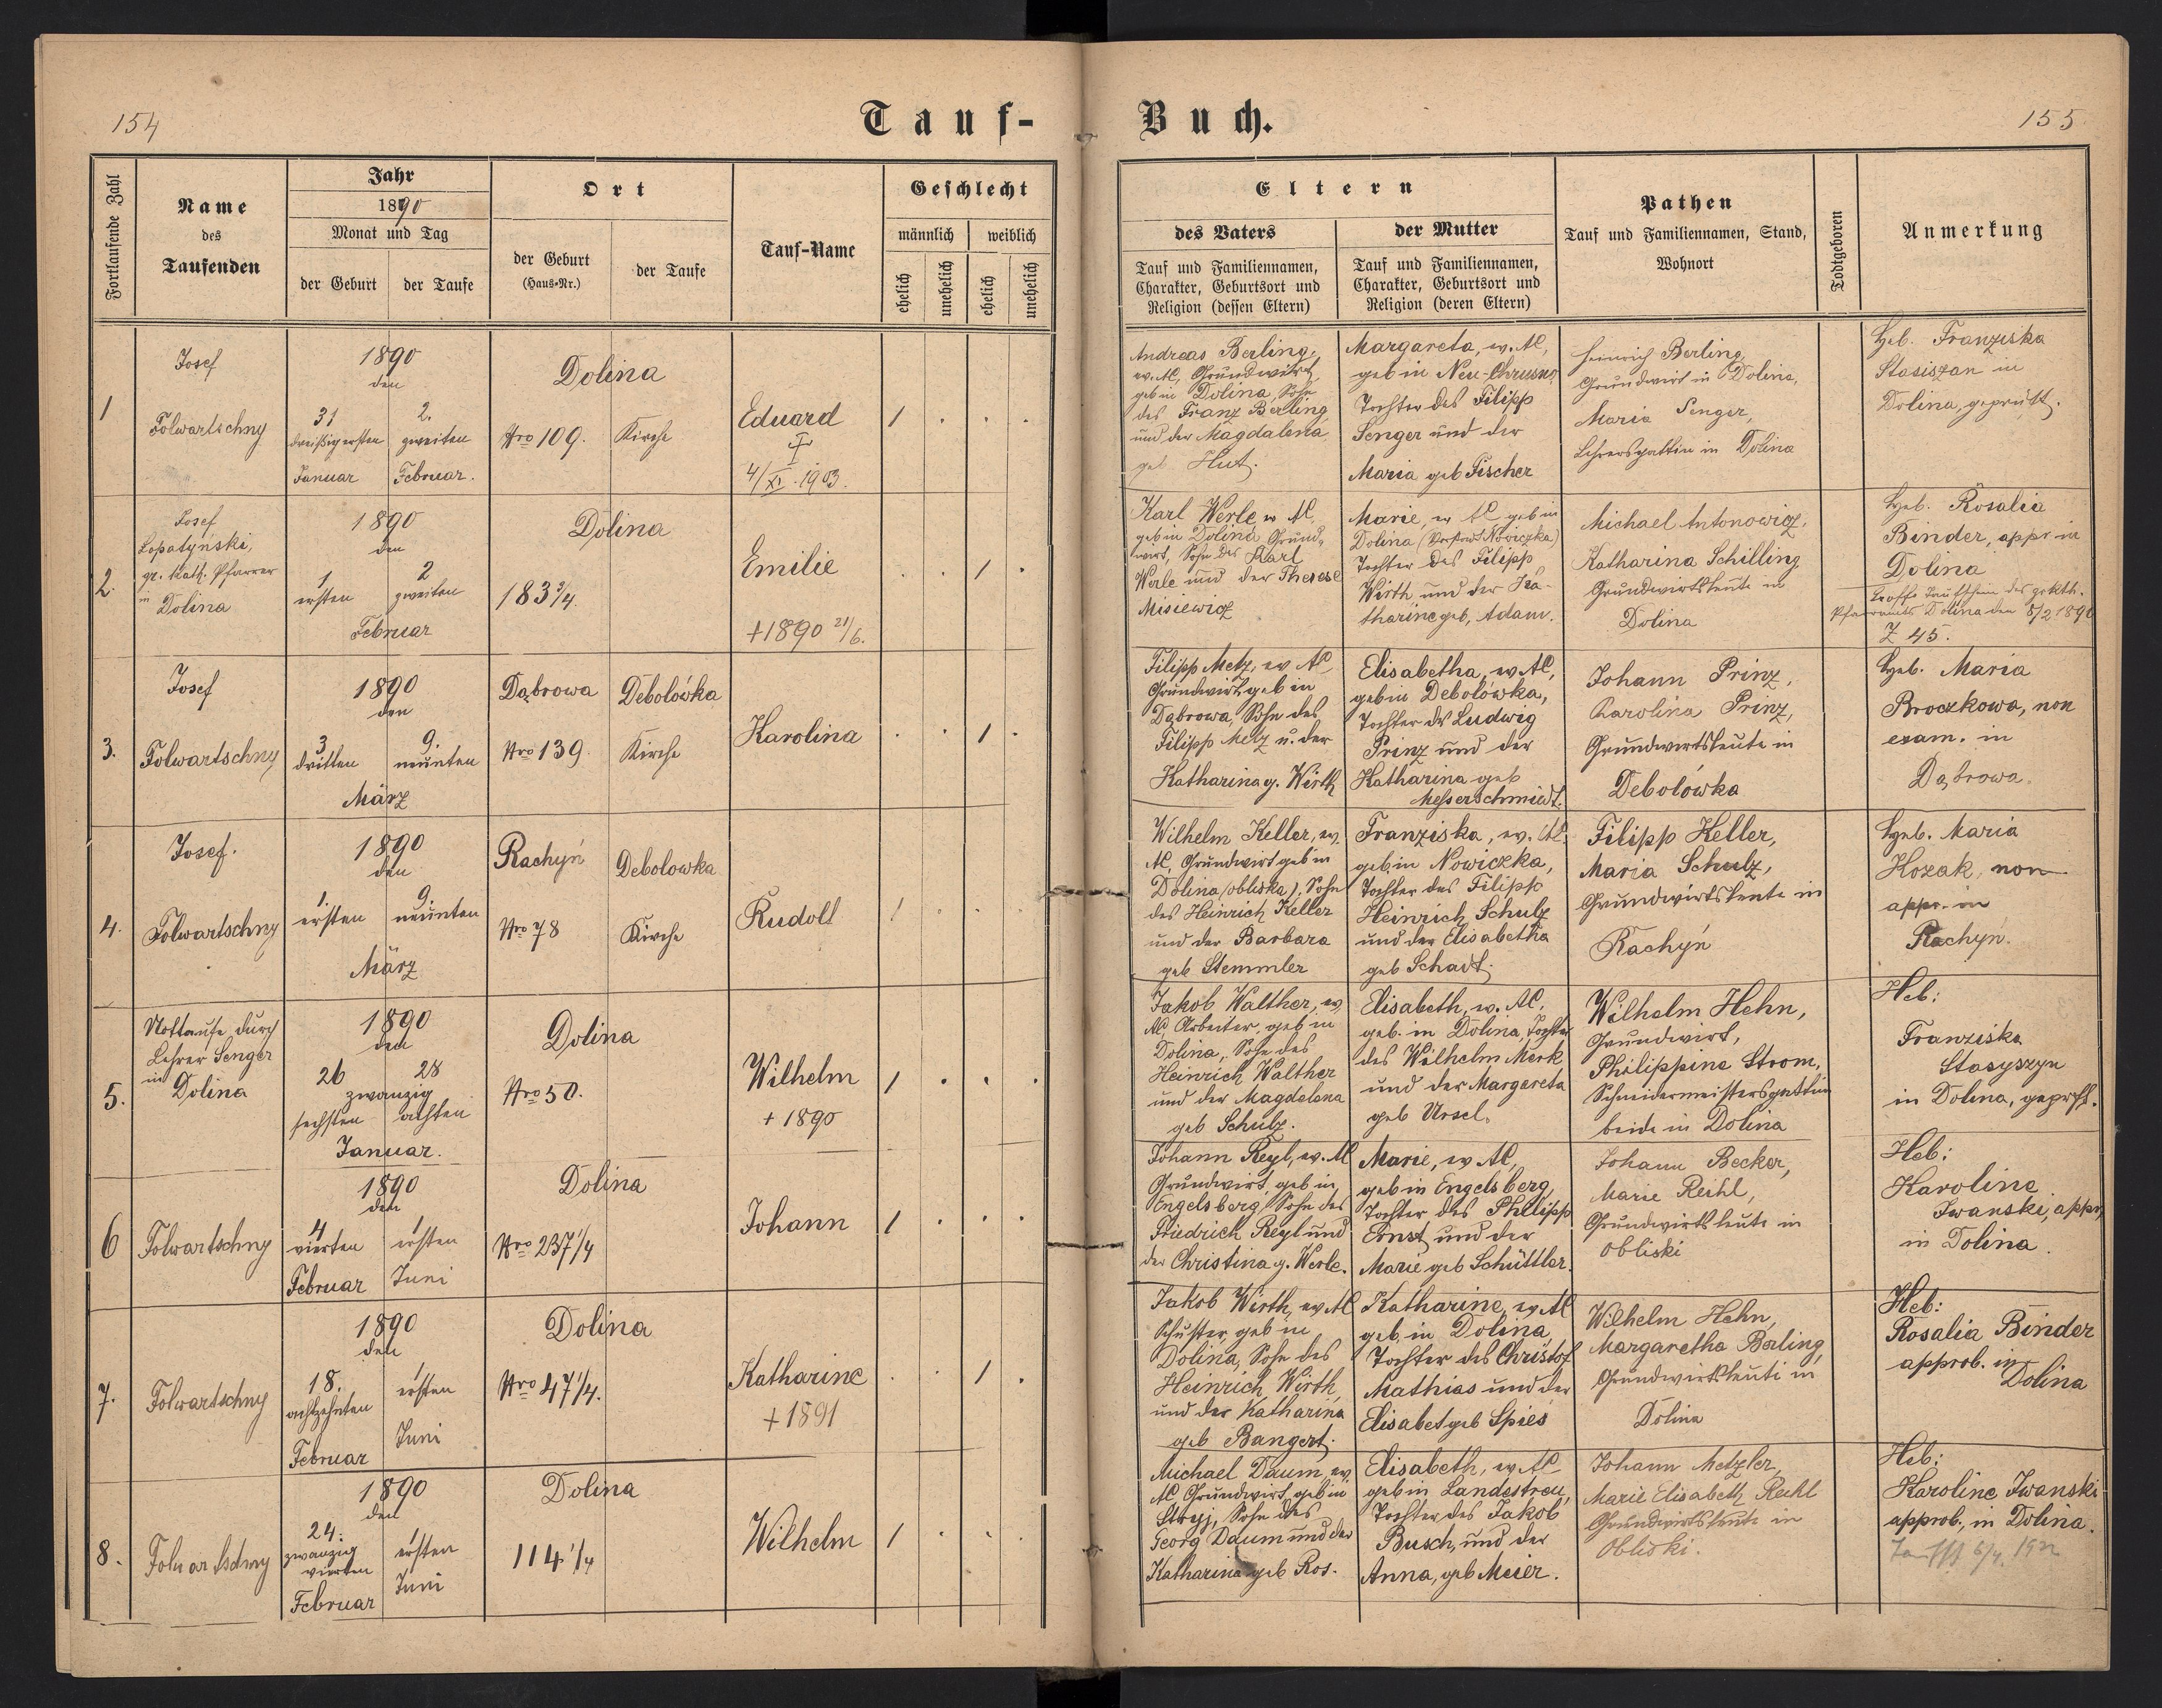 154
Tauf-
Buch.
155
Fortlaufende Zahl
Name
des
Taufenden
Jahr
1890
Monat und Tag
der Geburt
der Taufe
Ort
der Geburt
(Haus-Nr.)
der Taufe
Tauf-Name
Geschlecht
männlich
weiblich
ehelich
unehelich
ehelich
unehelich
Eltern
des Vaters
Tauf und Familiennamen,
Charakter, Geburtsort und
Religion (dessen Eltern)
der Mutter
Tauf und Familiennamen,
Charakter, Geburtsort und
Religion (deren Eltern)
Pathen
Tauf und Familiennamen, Stand,
Wohnort
Todtgeboren
Anmerkung
1
Josef
Folwartschny
1890
den
31
dreißigersten
Januar
2.
zweiten
Februar.
Dolina
Nro 109.
Kirche
Eduard
4/XI. 1903.
1 . . .
Andreas Berling,
ev. AC, Grundwirt,
geb in Dolina, Sohn
des Franz Berling
und der Magdalena
geb Hut.
Margareta, ev. AC,
geb in Neu-Chrusno,
Tochter des Filipp
Senger und der
Maria geb Fischer
Heinrich Berling,
Grundwirt in Dolina,
Maria Senger,
Lehrersgattin in Dolina
Heb. Franziska
Stasiszan in
Dolina, geprüft.
2.
Josef
Lopatyński,
gr. Kath. Pfarrer
in
Dolina
1890
den
1
ersten
2
zweiten
Februar
Dolina
183 3/4.
Emilie
+1890 21/6.
. . 1 .
Karl Werle ev AC,
geb in Dolina, Grund-
wirt, Sohn des Karl
Werle und der Therese
Misiewicz
Marie, ev AC geb in
Dolina (Vorstadt Nowiczka)
Tochter des Filipp
Wirth und der Ka-
tharine geb, Adam.
Michael Antonowicz,
Katharina Schilling
Grundwirtsleute in
Dolina
Heb. Rosalia
Binder, appr in
Dolina
Taufschein des gr kth.
Pfarramts Dolina den 5/2 1890
Z 45.
3.
Josef
Folwartschny
1890
den
3
dritten
9.
neunten
März
Dąbrowa
Nro 139.
Debolówka
Kirche
Karolina
. . 1 .
Filipp Metz, ev AC
Grundwirt, geb in
Dąbrowa, Sohn des
Filipp Metz u. der
Katharina g. Wirth
Elisabetha, ev AC,
geb in Debolówka,
Tochter des Ludwig
Prinz und der
Katharina geb
Messerschmiedt.
Johann Prinz,
Karolina Prinz,
Grundwirtsleute in
Debolówka
Heb. Maria
Broczkowa, non
exam. in
Dąbrowa.
4.
Josef.
Folwartschny
1890
den
1.
ersten
9.
neunten
März
Rachyń
Nro 78
Debolowka
Kirche
Rudolf
1 . . .
Wilhelm Keller, ev.
AC, Grundwirt geb in
Dolina (obliska), Sohn
des Heinrich Keller
und der Barbara
geb Stemmler
Franziska, ev. AC
geb in Nowiczka,
Tochter des Filipp
Heinrich Schulz
und der Elisabetha
geb Schadt.
Filipp Keller,
Maria Schulz,
Grundwirtsleute in
Rachyń
Heb. Maria
Kozak, non
appr. in
Rachyń.
5.
Nottaufe durch
Lehrer Senger
in
Dolina
1890
den
26
28
zwanzig
sechsten
achten
Januar.
Dolina
Nro 50.
Wilhelm
+ 1890
1 . . .
Jakob Walther, ev
AC, Arbeiter, geb in
Dolina, Sohn des
Heinrich Walther
und der Magdalena
geb Schulz.
Elisabeth, ev. AC.
geb. in Dolina, Tochter
des Wilhelm Merk
und der Margareta
geb Ursel.
Wilhelm Hehn,
Grundwirt,
Philippine Strom,
Schneidermeistersgattin
beide in Dolina
Heb:
Franziska
Stasyszyn
in Dolina, geprft.
6
Folwartschny
1890
den
4
vierten
Februar
1
ersten
Juni
Dolina
Nro 237 1/4
Johann
1 . . .
Johann Reyl, ev. AC
Grundwirt, geb in
Engelsberg, Sohn des
Friedrich Reyl und
der Christina g. Werle.
Marie, ev AC,
geb in Engelsberg,
Tochter des Philipp
Ernst und der
Marie geb Schüttler.
Johann Becker,
Marie Reihl,
Grundwirtsleute in
Obliski
Heb:
Karoline
Iwanski, appr,
in Dolina.
7.
Folwartschny
1890
den
18.
achtzehnten
Februar
1
ersten
Juni
Dolina
Nro 47 1/4.
Katharine
+ 1891
. . 1 .
Jakob Wirth, ev AC
Schuster, geb in
Dolina, Sohn des
Heinrich Wirth,
und der Katharina
geb Bangert.
Katharine, ev AC
geb, in Dolina,
Tochter des Christof
Mathias und der
Elisabet geb Spies
Wilhelm Hehn,
Margaretha Berling,
Grundwirtsleute in
Dolina
Heb:
Rosalia Binder
approb. in
Dolina
8.
Folwartschny
1890
den
24.
zwanzig
vierten
Februar
1
ersten
Juni
Dolina
114 1/4
Wilhelm
1 . . .
Michael Daum, ev.
AC Grundwirt, geb in
Stryj, Sohn des
Georg Daum und der
Katharina geb Ros.
Elisabeth, ev AC
geb in Landestreu,
Tochter des Jakob
Busch, und der
Anna, geb Meier.
Johann Metzler,
Marie Elisabeth Reihl
Grundwirtsleute in
Obliski.
Heb:
Karoline Iwanski
approb., in Dolina.